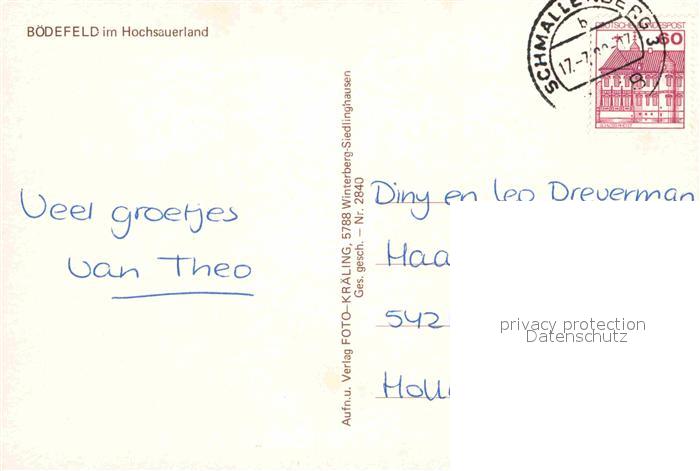 BÖDEFELD im Hochsauerland
Veel groetjes
van Theo
Aufn.u. Verlag FOTO-KRÄLING, 5788 Winterberg-Siedlinghausen
Ges. gesch. – Nr. 2840
SCHMALLENBERG 3
b
17.-7.
8
DEUTSCHE BUNDESPOST
60
Diny en Leo Dreverman
Haa
542
Holl
privacy protection
Datenschutz